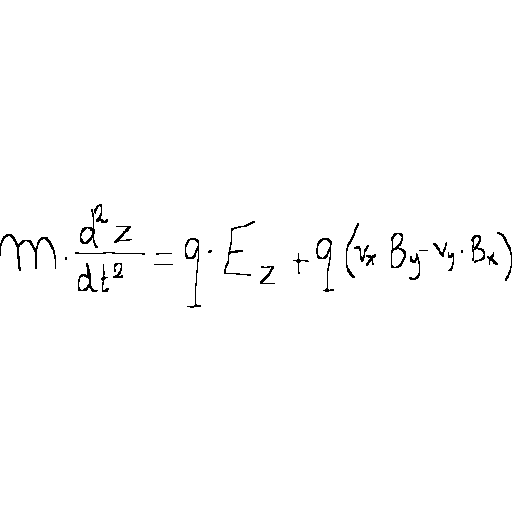 m · d²z/dt² = q · E_z + q (v_x B_y - v_y · B_x)